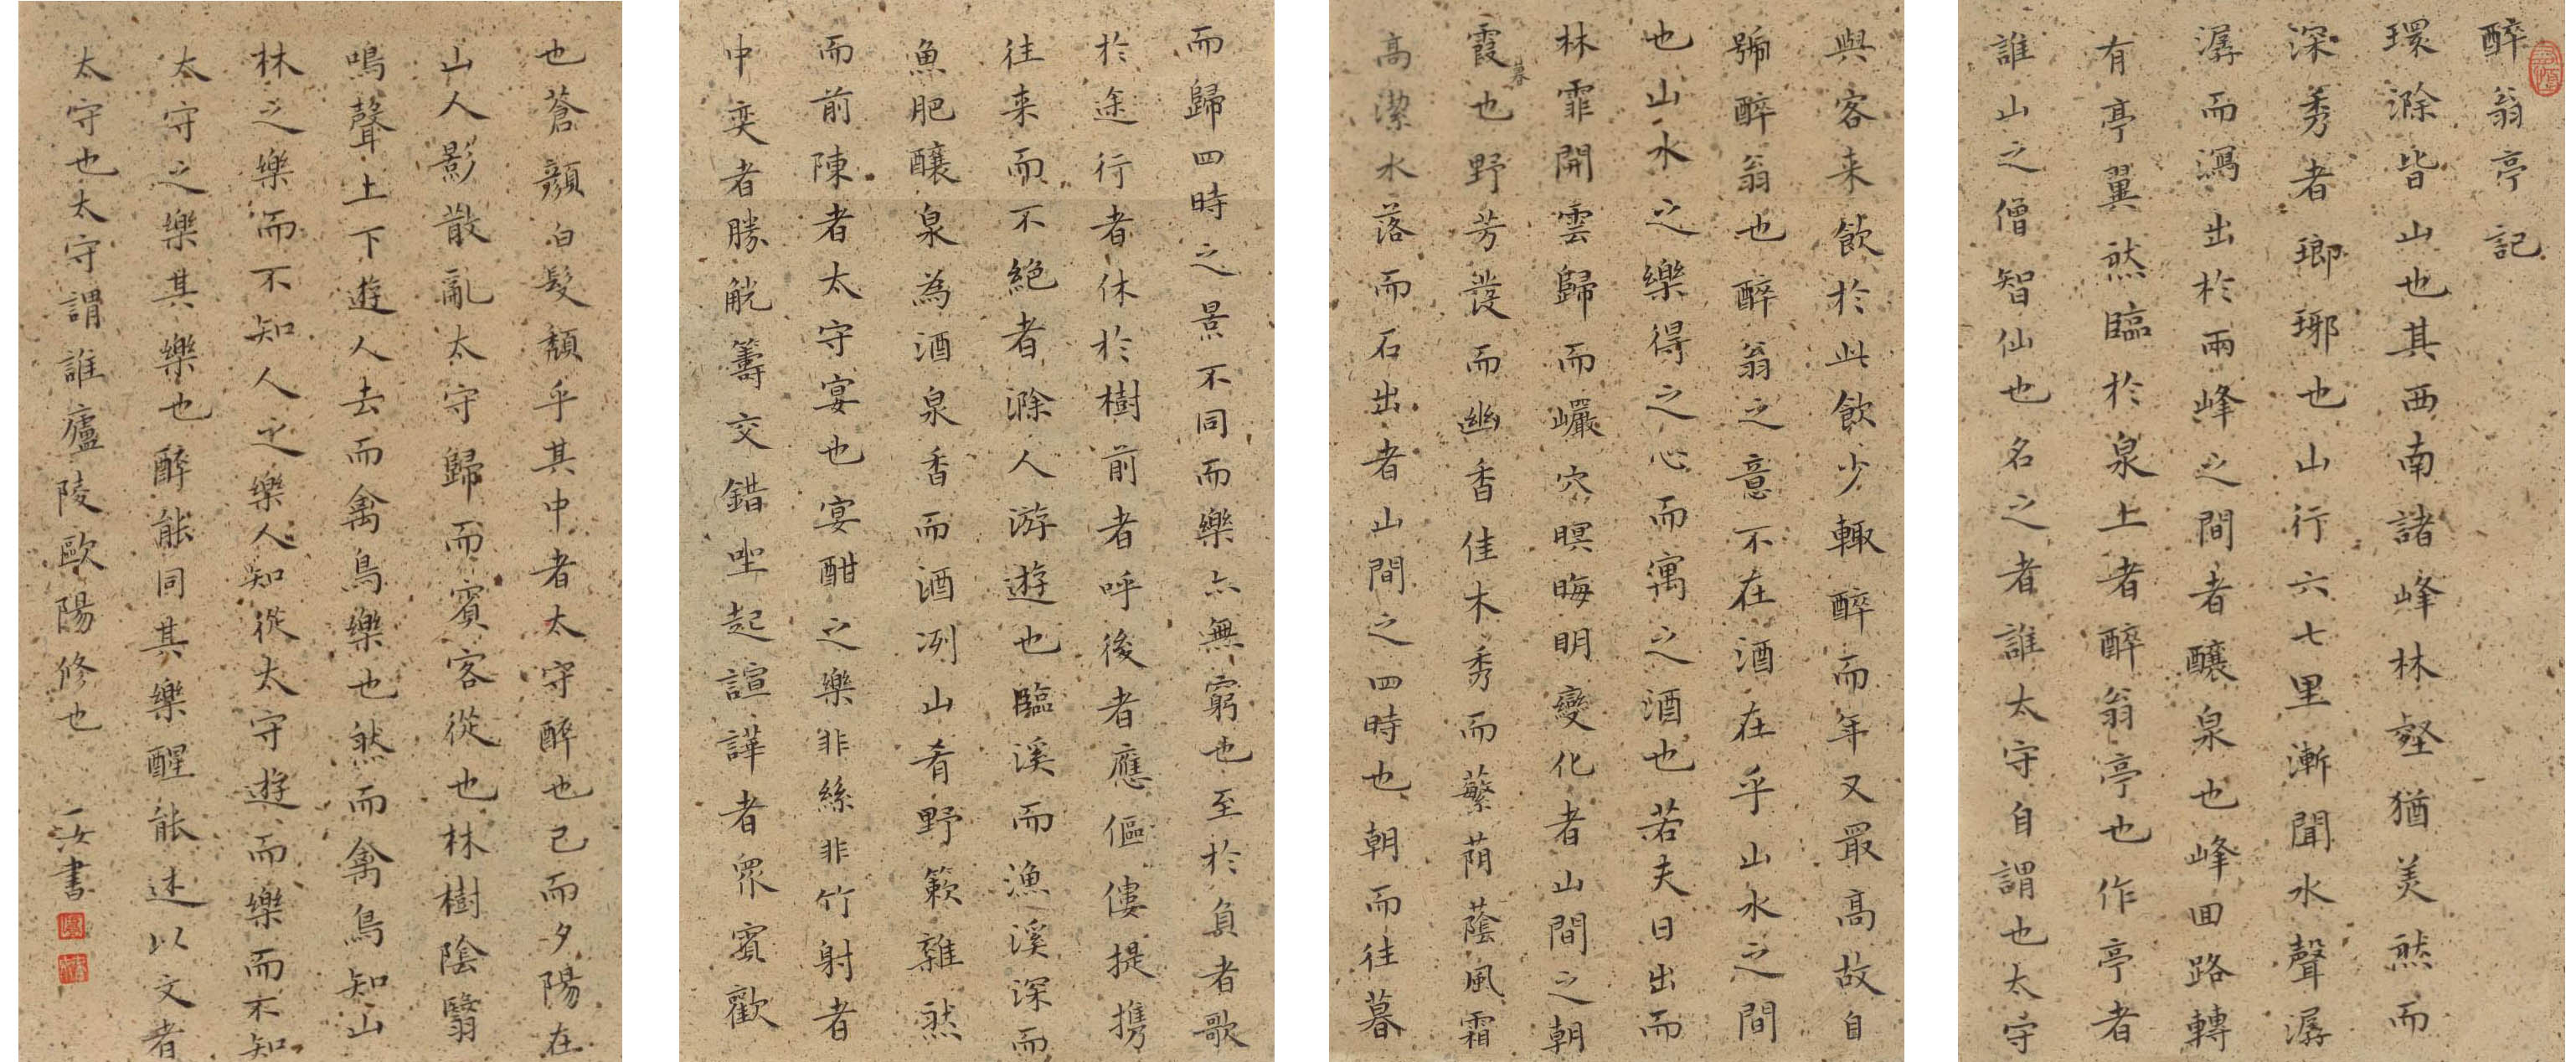 醉翁亭記
環滁皆山也其西南諸峰林壑猶美然而
深秀者瑯琊也山行六七里漸聞水聲潺
潺而瀉出於兩峰之間者釀泉也峰回路轉
有亭翼然臨於泉上者醉翁亭也作亭者
誰山之僧智仙也名之者誰太守自謂也太守
與客来飲於此飲少輒醉而年又最高故自
號醉翁也醉翁之意不在酒在乎山水之間
也山水之樂得之心而寓之酒也若夫日出而
林霏開雲歸而巖穴暝晦明變化者山間之朝
暮
霞也野芳發而幽香佳木秀而蘩荫蔭風霜
高潔水落而石出者山間之四時也朝而往暮
而歸四時之景不同而樂亦無窮也至於負者歌
於途行者休於樹前者呼後者應傴僂提攜
往来而不絕者滁人游遊也臨溪而漁溪深而
魚肥釀泉為酒泉香而酒冽山肴野簌雜然
而前陳者太守宴也宴酣之樂非絲非竹射者
中奕者勝觥籌交錯坐起諠譁者眾賓歡
也蒼顏白髮頹乎其中者太守醉也已而夕陽在
山人影散亂太守歸而賓客從也林樹陰翳
鳴聲上下遊人去而禽鳥樂也然而禽鳥知山
林之樂而不知人之樂人知從太守遊而樂而不知
太守之樂其樂也醉能同其樂醒能述以文者
太守也太守謂誰廬陵歐陽修也 一汝書